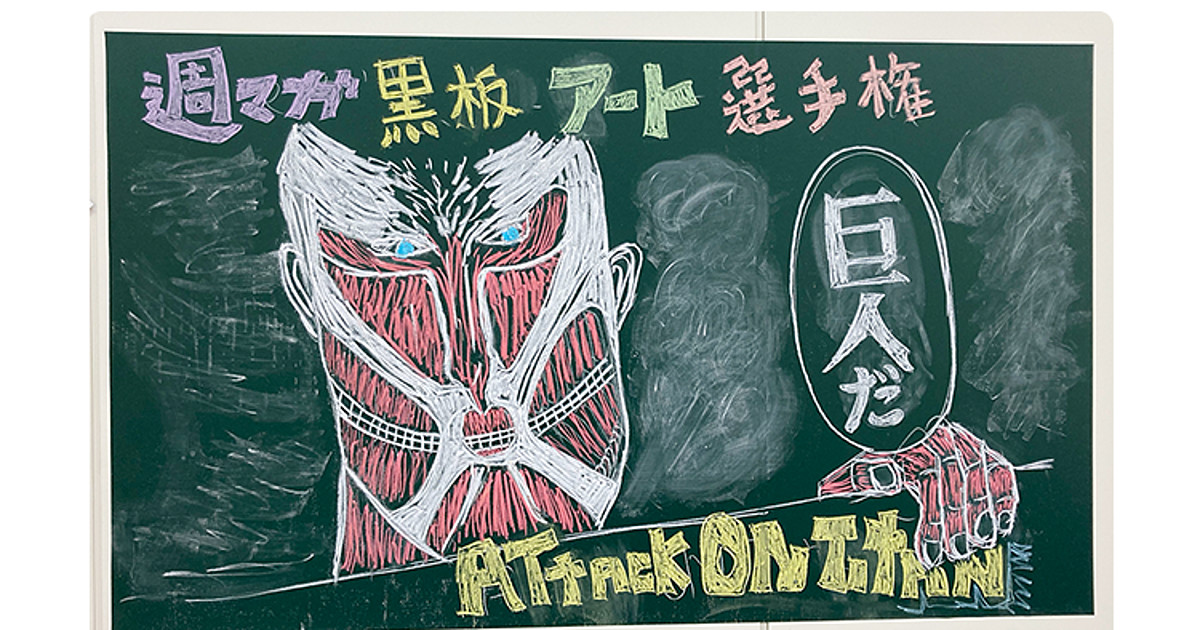 週マガ 黒板 アート 選手権
巨人だ
ATtack ON TiTAN